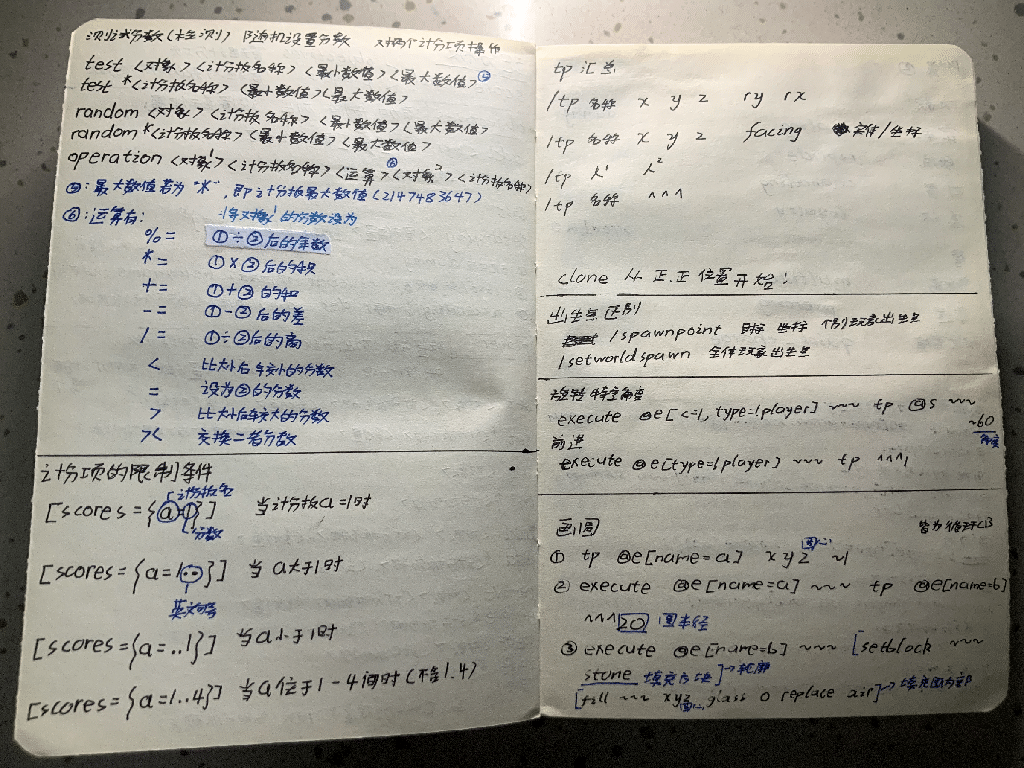 测试分数(检测) 随机设置分数 对两个计分项操作
test <对象> <计分板名称> <最小数值> <最大数值> ④
test * <计分板名称> <最小数值> <最大数值>
random <对象> <计分板名称> <最小数值> <最大数值>
random * <计分板名称> <最小数值> <最大数值>
operation <对象1> <计分板名称> <运算> <对象2> <计分板名称>
⑥
: 最大数值若为 "*", 即计分板最大数值 (2147483647)
⑥: 运算有: 将对象1的分数设为
%= ①÷②后的余数
*= ①×②后的积
+= ①+②的和
-= ①-②后的差
/= ①÷②后的商
< 比大小后较小的分数
= 设为②的分数
> 比大小后较大的分数
>< 交换二者分数
计分项的限制条件
计分板名
[scores={a=1}] 当计分板a=1时
分数
[scores={a=1..}] 当a大于1时
英文句号
[scores={a=..1}] 当a小于1时
[scores={a=1..4}] 当a位于1-4间时(不含1.4)
tp 汇总
/tp 名称 x y z ry rx
/tp 名称 x y z facing 实体/坐标
/tp 人1 人2
/tp 名称 ^^^
clone 从正.正位置开始!
出生点区别
/spawnpoint 目标 坐标 个别玩家出生点
/setworldspawn 全体玩家出生点
旋转特定角度
execute @e[c=1,type=!player] ~~~ tp @s ~~~
~60
角度
前进
execute @e[type=!player] ~~~ tp ^^^1
画圆 皆为循环CB
① tp @e[name=a] x y z ~1
圆心
② execute @e[name=a] ~~~ tp @e[name=b]
^^^20 圆半径
③ execute @e[name=b] ~~~ [setblock ~~~
stone 填充方块]→轮廓
[fill ~~~ xyz glass 0 replace air]→填充圆内部
圆心